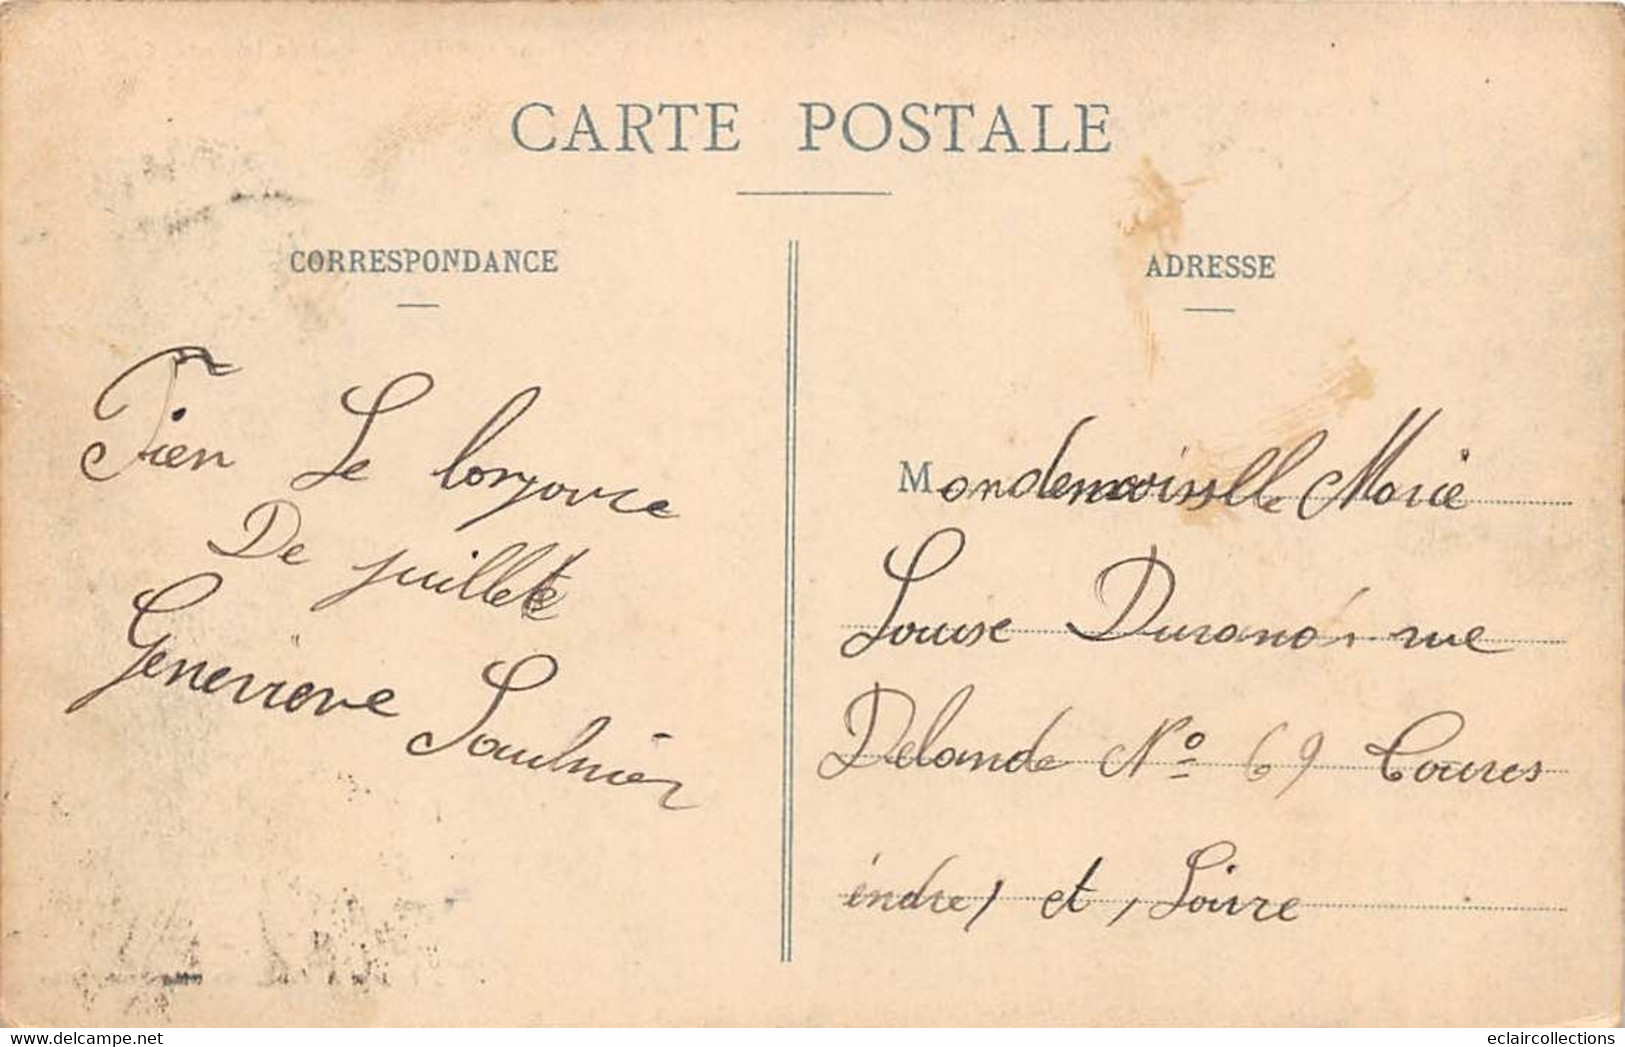 CARTE POSTALE
CORRESPONDANCE
Tien Le lonjoure
De juillete
Genevieve Saulnier
ADRESSE
Mondemoiselle Marie
Louise Durand rue
Delande No 69 Toures
indre, et, Loire
www.delcampe.net
eclaircollections